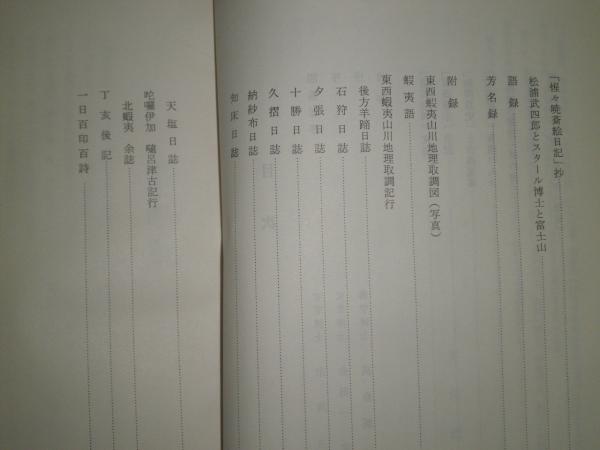 「惺々暁斎絵日記」抄
松浦武四郎とスタール博士と富士山
語録
芳名録
附録
東西蝦夷山川地理取調図(写真)
蝦夷語
東西蝦夷山川地理取調記行
後方羊蹄日誌
石狩日誌
夕張日誌
十勝日誌
久摺日誌
納紗布日誌
知床日誌
天塩日誌
北蝦夷余誌
丁亥後記
一日百印百詩